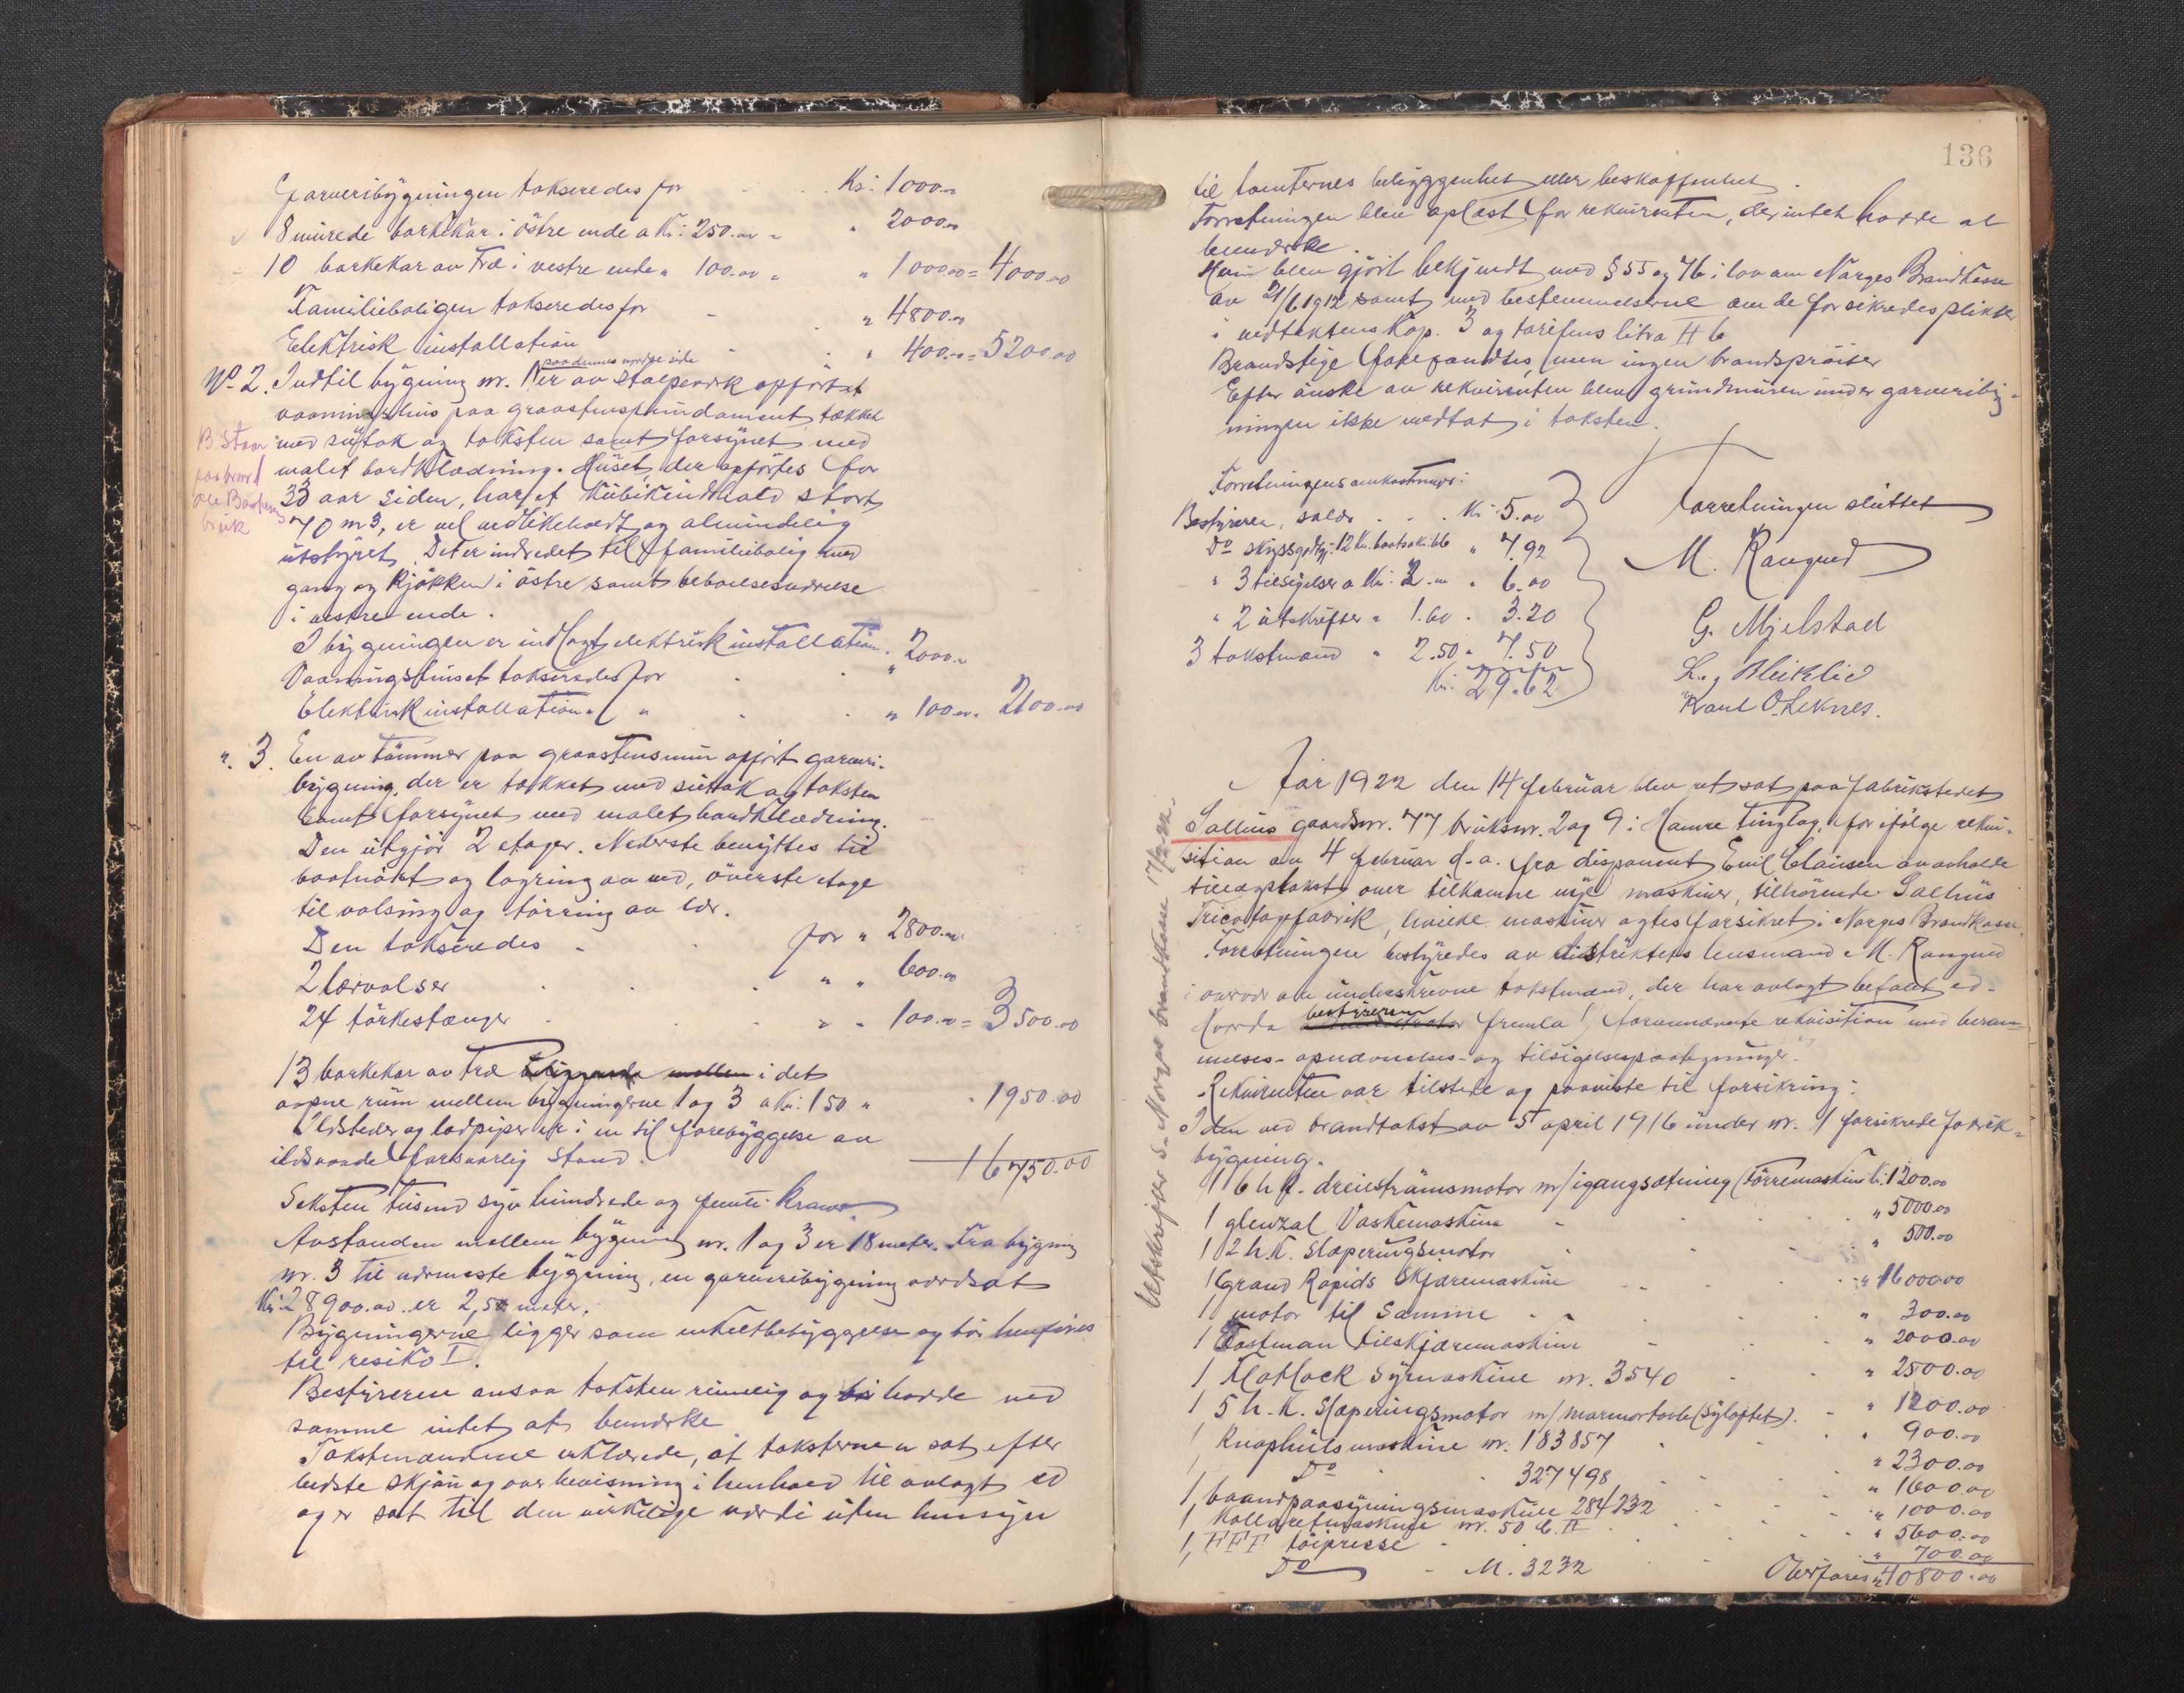 Garveribygningen takseredes for Kr: 1000.00
8 murede barkekar i östre ende a Kr: 250.00 = " 2000.00
10 barkekar av Træ i vestre ende " 100.00 = " 1000.00 = 4000.00
Familieboligen takseredes for " 4800.00
Elektrisk installation " 400.00 = 5200.00
paa dennes nordre side
No 2. Indtil bygning nr. 1 er av stolpeverk opfört et
vaaningshus paa graastensfundament, tækket
med sutak og taksten samt forsynet med
malet bordklædning. Huset, der opförtes for
33 aar siden, har et kubikindhold stort
70 m3, er vel vedlikeholdt og almindelig
utstyret. Det er indredet til familiebolig med
gang og kjökken i östre samt beboelsesværelse
i vestre ende.
B. staar
paa brand
Ole Baatens
bruk
I bygningen er indlagt elektrisk installation.
Vaaningshuset takseredes for " 2000.00
Elektrisk installation " " " 100.00 = 2100.00
". 3. En av tömmer paa graastensmur opfört garveri-
bygning, der er tækket med sutak og taksten
samt forsynet med malet bordklædning.
Den utgjör 2 etager. Nederste benyttes til
baatnöst og lagring av ved, överste etage
til valsing og törring av lær.
Den takseredes for " 2800.00
2 lærvalser " " 600.00
24 törkestænger " " 100.00 = 3500.00
13 barkekar av Træ i det
aapne rum mellem bygningerne 1 og 3 a Kr: 150 " " 1950.00
Ildsteder og lodpiper er i en til forebyggelse av
ildsvaade forsvarlig stand. 16750.00
Seksten tusend syv hundrede og femti kroner
Avstanden mellem bygning nr. 1 og 3 er 18 meter. Fra bygning
nr. 3 til nærmeste bygning, en garveribygning værdsat
Kr: 28900.00 er 2,50 meter.
Bygningerne ligger som enkeltbebyggelse og bör henföres
til resiko I.
Bestyreren ansaa taksten rimelig og hadde ved
samme intet at bemærke
Takstmændene erklærede, at taksterne er sat efter
bedste skjön og overbevisning i henhold til avlagt ed
og er sat til den virkelige værdi uten hensyn
136
til tomternes beliggenhet eller beskaffenhet.
Forretningen blev oplæst for rekvirenten, der intet hadde at
bemærke.
Han blev gjört bekjendt med § 55 og 76 i lov om Norges Brandkasse
av 21/6 1912 samt med bestemmelserne om de forsikredes plikter
i vedtaktens Kap. 3 og tarifens litra H 6
Brandstige forefandtes, men ingen brandspröiter
Efter önske av rekvirenten blev grundmuren under garveribyg-
ningen ikke medtat i taksten.
Forretningens omkostninger:
Bestyreren, salær Kr: 5.00
Do skyssgodtgj. 12 Km. baatsa Kr. 66 " 7.92
" 3 tilsigelser a Kr: 2.00 " 6.00
" 2 utskrifter " 1.60 " 3.20
3 takstmænd " 2.50 " 7.50
Kr: 29.62
Forretningen sluttet
M. Rangnæd
G. Mjelstad
L. J. Bleiklie
Karl O. Leknes.
Utskrift Norges brandkasse 17/2-22
Aar 1922 den 14 februar blev ret sat paa fabrikstedet
Salhus gaardsnr. 77 bruksnr. 2 og 9 i Hamre tinglag, for ifölge rekvi-
sition av 4 februar d.a. fra disponent Emil Clausen at avholde
tillægstakst over tilkomne nye maskiner, tilhörende Salhus
Tricotagefabrik, hvilke maskiner agtes forsikret i Norges Brandkasse.
Forretningen bestyredes av distriktets lensmand M. Rangnæd
i overvær av underskrevne takstmænd, der har avlagt befalet ed.
Hvorda bestyreren fremla forannævnte rekvisition med beram-
melses- opnævnelses- og tilsigelsespaategninger.
Rekvirenten var tilstede og paaviste til forsikring:
I den ved brandtakst av 5 april 1916 under nr. 1 forsikrede fabrik-
bygning.
1 6 h.k. dreieströmsmotor m/igangsætning (Törremaskine) Kr. 1200.00
1 glenzal Vaskemaskine " 5000.00
1 2 h.K. Slæperingsmotor " 500.00
1 Grand Rapids Skjæremaskine " 16000.00
1 motor til Samme " 300.00
1 Eastman tilskjæremaskine " 2000.00
1 Flatlock Symaskine nr. 3540 " 2500.00
1 5 h.K. Slæperingsmotor m/marmortavle (Syloftet). " 1200.00
1, Knaphulsmaskine nr. 183857 " 900.00
1, Do 327498 " 2300.00
1, baandpaasyningsmaskine 284232 " 1600.00
1 Kollaretmaskine nr. 50 d. II " 1000.00
1, FFF töipresse " 5600.00
1, Do M. 3232 " 700.00
Overföres " 40800.00